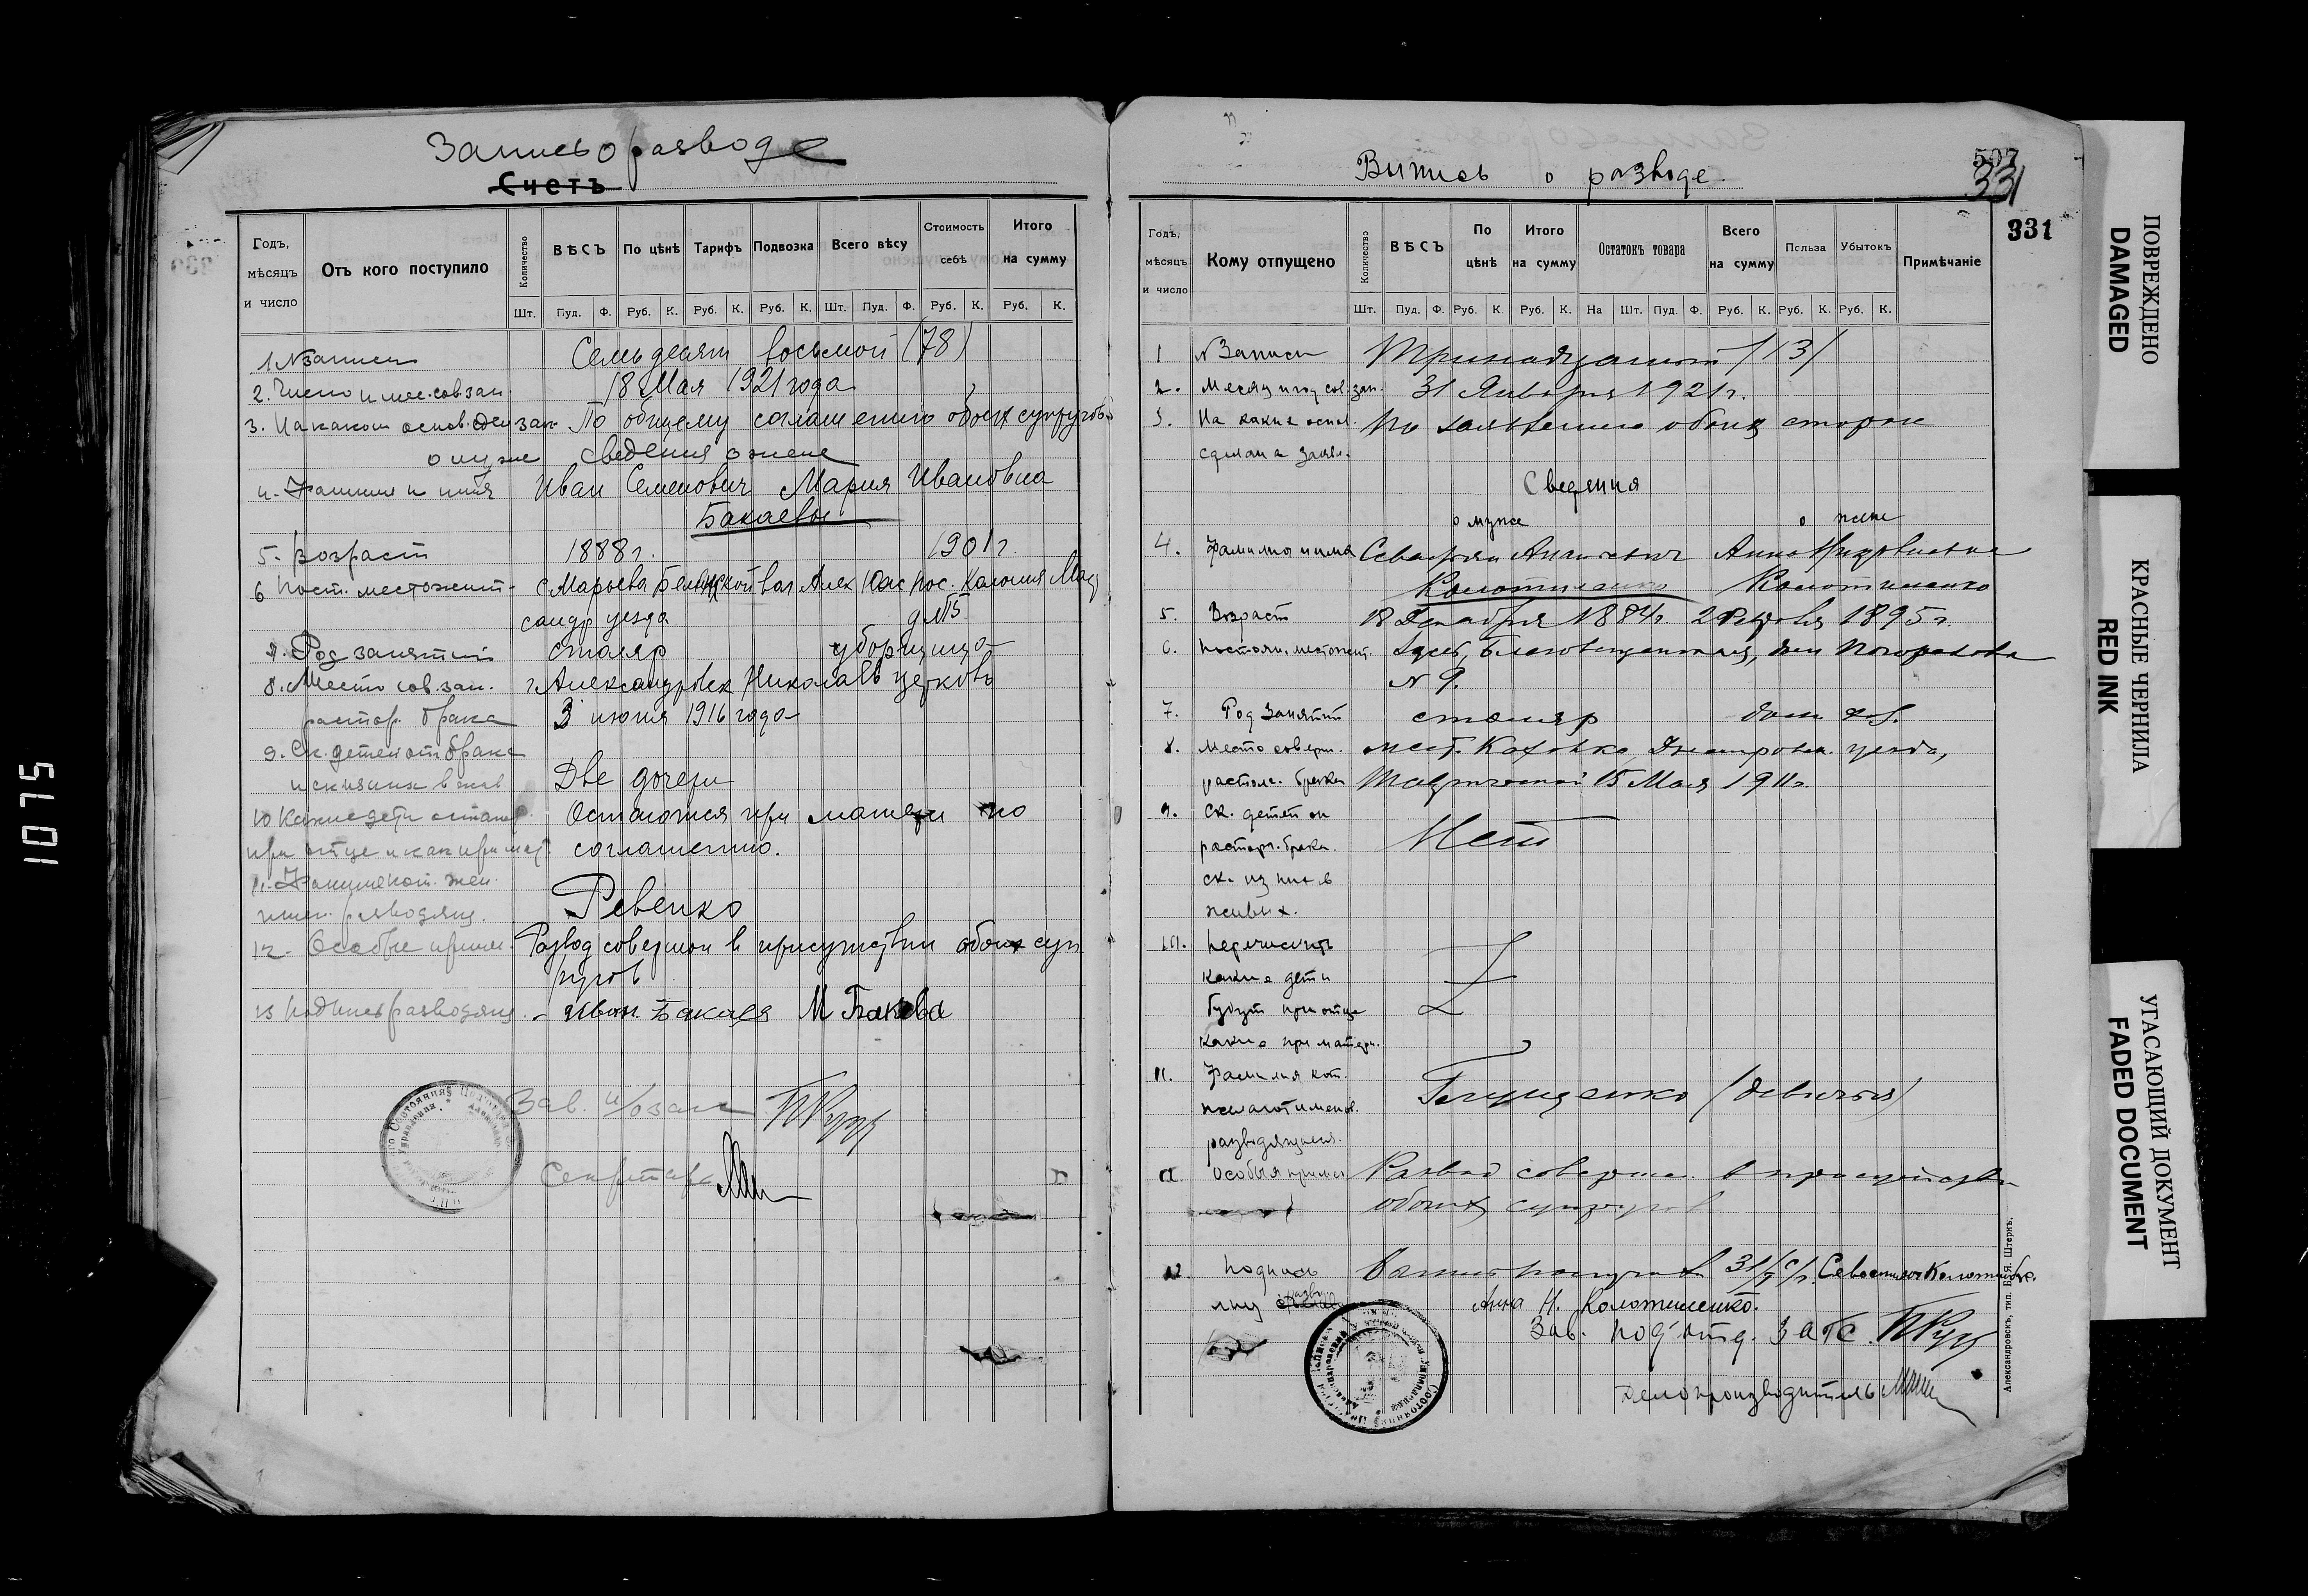 Запись о разводе
Счетъ
Годъ, мѣсяцъ и число
Отъ кого поступило
Количество
ВѢСЪ
По цѣнѣ
Тарифъ
Подвозка
Всего вѣсу
Стоимость себѣ
Итого на сумму
Шт. Пуд. Ф. Руб. К. Руб. К. Руб. К. Шт. Пуд. Ф. Руб. К. Руб. К.
1 № записи Семьдесят восьмой (78)
2. Число и мес. сов. зап. 18 Мая 1921 года
3. На каком основ. сделан зап. По общему соглашению обоих супругов
о муже сведения о жене
4. Фамилия и имя Иван Семенович Мария Ивановна
Бакаевы
5. Возраст 1888 г. 1901 г.
6 Пост. местожит. с Марьевка вол Алек Южн пос. Колония
сандр уезда д №15
7. Род занятий столяр уборщица
8. Место сов. зап. г. Александровск Николаев церковь
растор. брака 3 июня 1916 года
9. Ск. детей от брака
и ск. из них в жив Две дочери
10 Какие дети остают. Остаются при матери по
при отце и как при мат. соглашению.
11. Фамилия кот. жел.
имен. разводящ. Ревенко
12. Особые прим. Развод совершен в присутствии обоих суп
ругов
13 Подпись разводящ. - Иван Бакаев М Бакаева
Зав. п/о загс
Секретарь
Выпись о разводе
507
331
331
Годъ, мѣсяцъ и число
Кому отпущено
Количество
ВѢСЪ
По цѣнѣ
Итого на сумму
Остатокъ товара
Всего на сумму
Польза
Убытокъ
Примѣчаніе
Шт. Пуд. Ф. Руб. К. Руб. К. На Шт. Пуд. Ф. Руб. К. Руб. К. Руб. К.
1 № Записи Тринадцатый /13/
2. Месяц и год сов. зап. 31 Января 1921 г.
3. На какие основ. По заявлению обоих сторон
сделан а заявл.
Сведения
о муже о жене
4. Фамилия и имя Анна
Колотиленко Колотиленко
5. Возраст 18 Декабря 1884 г. 2 Февраля 1895 г.
6. Постоян. местожит. Благовещенская, дом
№ 9.
7. Род Занятий столяр дом. хоз.
8. Место соверш. мест. Каховка, Днепровск. уезда,
растор. брака Таврической 15 Мая 1911 г.
9. Ск. детей от
расторг. брака. Нет
ск. из них в
живых.
10. Перечислить
какие дети
будут при отце
какие при матери.
11. Фамилия кот.
желают именов. (девичья)
разводящиеся.
12 Особыя примеч. Развод соверш. в присутствии
обоих супругов
13. Подпись
лиц Анна Н. Колотиленко.
Зав. под'отд. ЗАГС
Делопроизводитель
Александровскъ, тип. Б. Я. Штернъ.
ПОВРЕЖДЕНО
DAMAGED
КРАСНЫЕ ЧЕРНИЛА
RED INK
УГАСАЮЩИЙ ДОКУМЕНТ
FADED DOCUMENT
1075